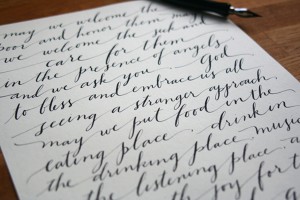 may we welcome the
poor and honor them may
we welcome the sick and
care for them
in the presence of angels
and we ask you God
to bless and embrace us all
seeing a stranger approach,
may we put food in the
eating place, drink in
the drinking place, music
the listening place, a
joy for t